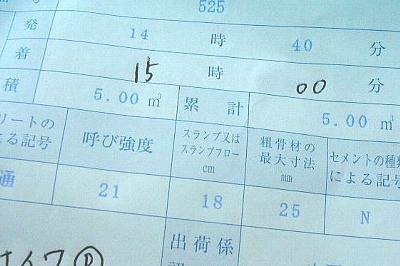 525
発 14 時 40 分
着 15 時 00 分
積 5.00 m³ 累計 5.00 m³
リートの
よる記号
呼び強度
スランプ又は
スランプフロー
cm
粗骨材の
最大寸法
mm
セメントの種類
による記号
通 21 18 25 N
出荷係